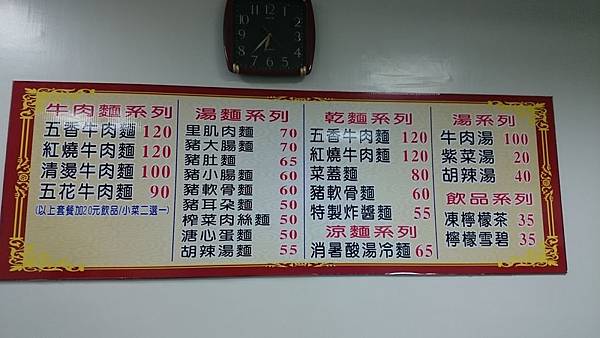 牛肉麵系列
五香牛肉麵 120
紅燒牛肉麵 120
清燙牛肉麵 100
五花牛肉麵 90
(以上套餐加20元飲品/小菜二選一)
湯麵系列
里肌肉麵 70
豬大腸麵 70
豬肚麵 65
豬小腸麵 60
豬軟骨麵 60
豬耳朵麵 50
榨菜肉絲麵 50
溏心蛋麵 50
胡辣湯麵 55
乾麵系列
五香牛肉麵 120
紅燒牛肉麵 120
菜蓋麵 80
豬軟骨麵 60
特製炸醬麵 55
涼麵系列
消暑酸湯冷麵 65
湯系列
牛肉湯 100
紫菜湯 20
胡辣湯 40
飲品系列
凍檸檬茶 35
檸檬雪碧 35